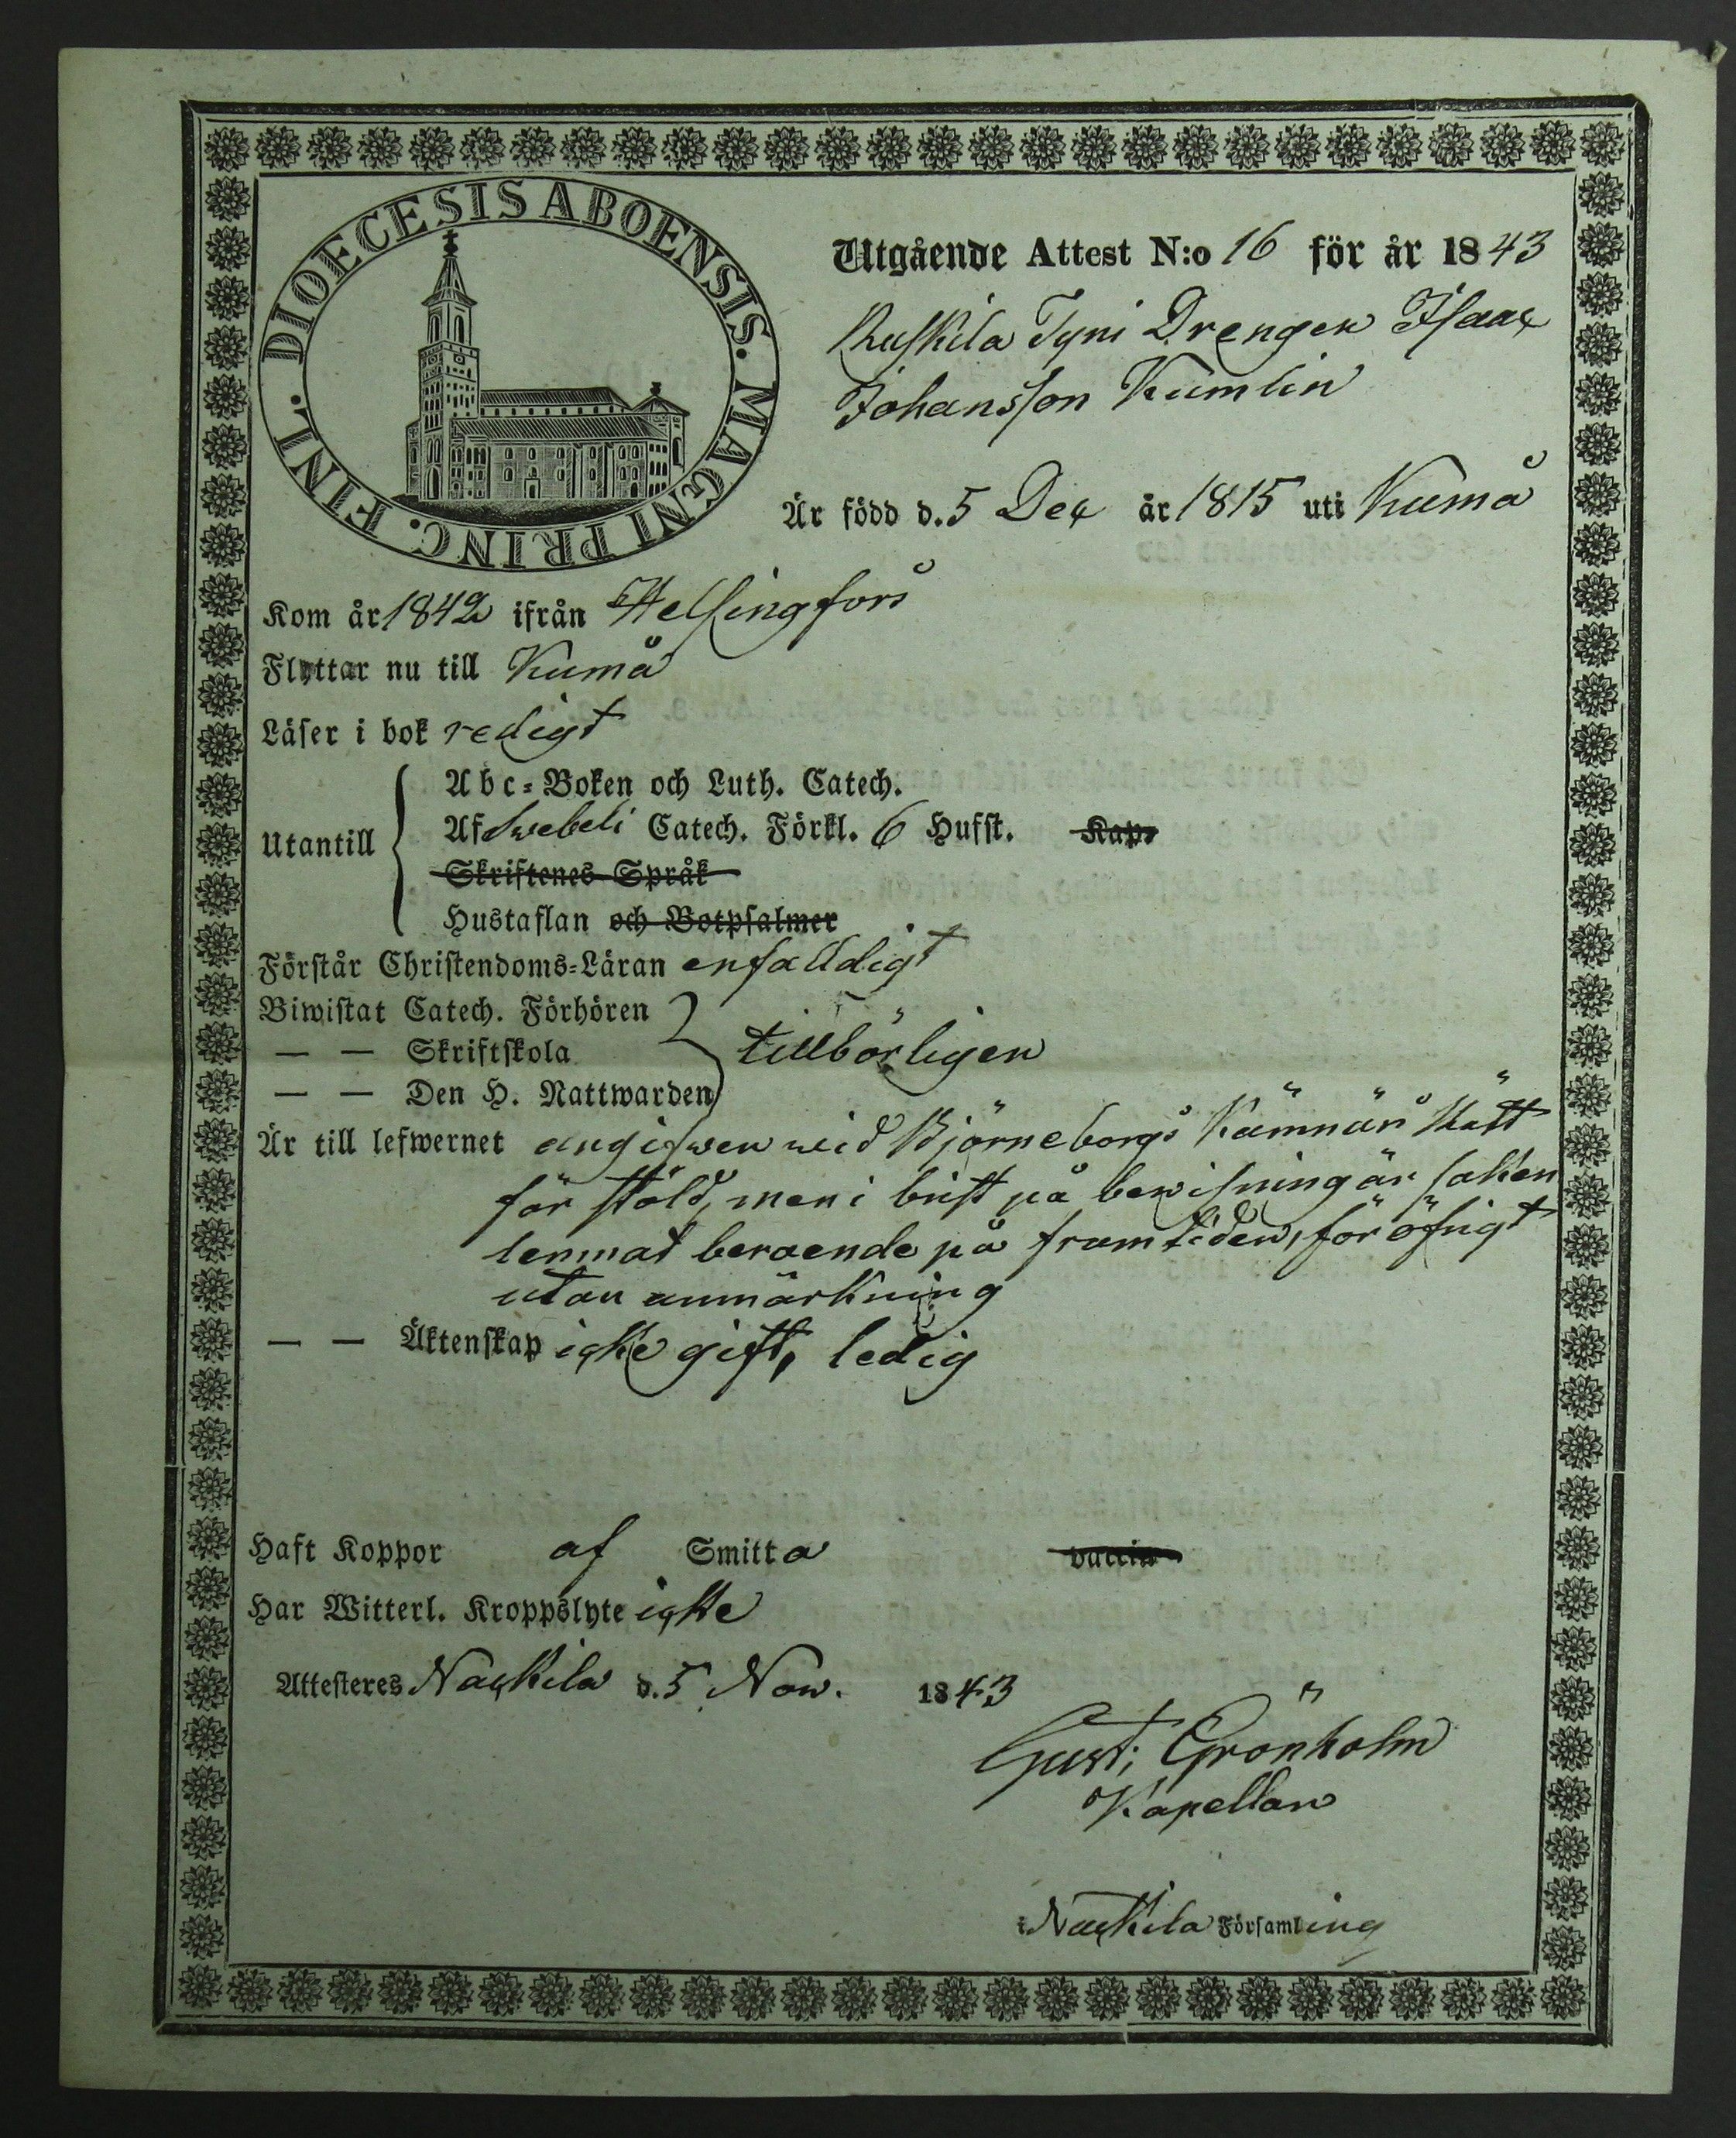 DIOECESIS ABOENSIS. MAGNI PRINC. FINL.
Utgående Attest N:o 16 för år 1843
Ruskila Tyni Drengen Isaac
Johansson Kumlin
Är född d. 5 Dec år 1815 uti Kumå
Kom år 1842 ifrån Helsingfors
Flyttar nu till Kumå
Läser i bok redigt
Utantill
Abc-Boken och Luth. Catech.
Af Swebeli Catech. Förkl. 6 Hufst. Kap.
Skriftenes Språk
Hustaflan och Botpsalmer
Förstår Christendoms-Läran enfalldigt
Biwistat Catech. Förhören
— — Skriftskola tillbörligen
— — Den H. Nattwarden
Är till lefwernet angifwen wid Björneborgs Kämnärs Rätt
för stöld, men i brist på bewisning är saken
lemnat beroende på framtiden, för öfrigt
utan anmärkning
— — Äktenskap icke gift, ledig
Haft Koppor af Smitta vaccin
Har Witterl. Kroppslyte icke
Attesteres Nackila d. 5 Now. 1843
Gust: Grönholm
Kapellan
i Nackila Församling